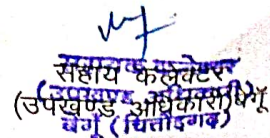 सहायक कलेक्टर
(उपखण्ड अधिकारी) बेगूं
बेगूं (चित्तौड़गढ़)